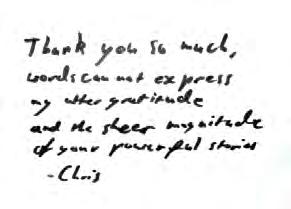 Thank you so much,
words can not express
my utter gratitude
and the sheer magnitude
of your powerful stories
-Chris